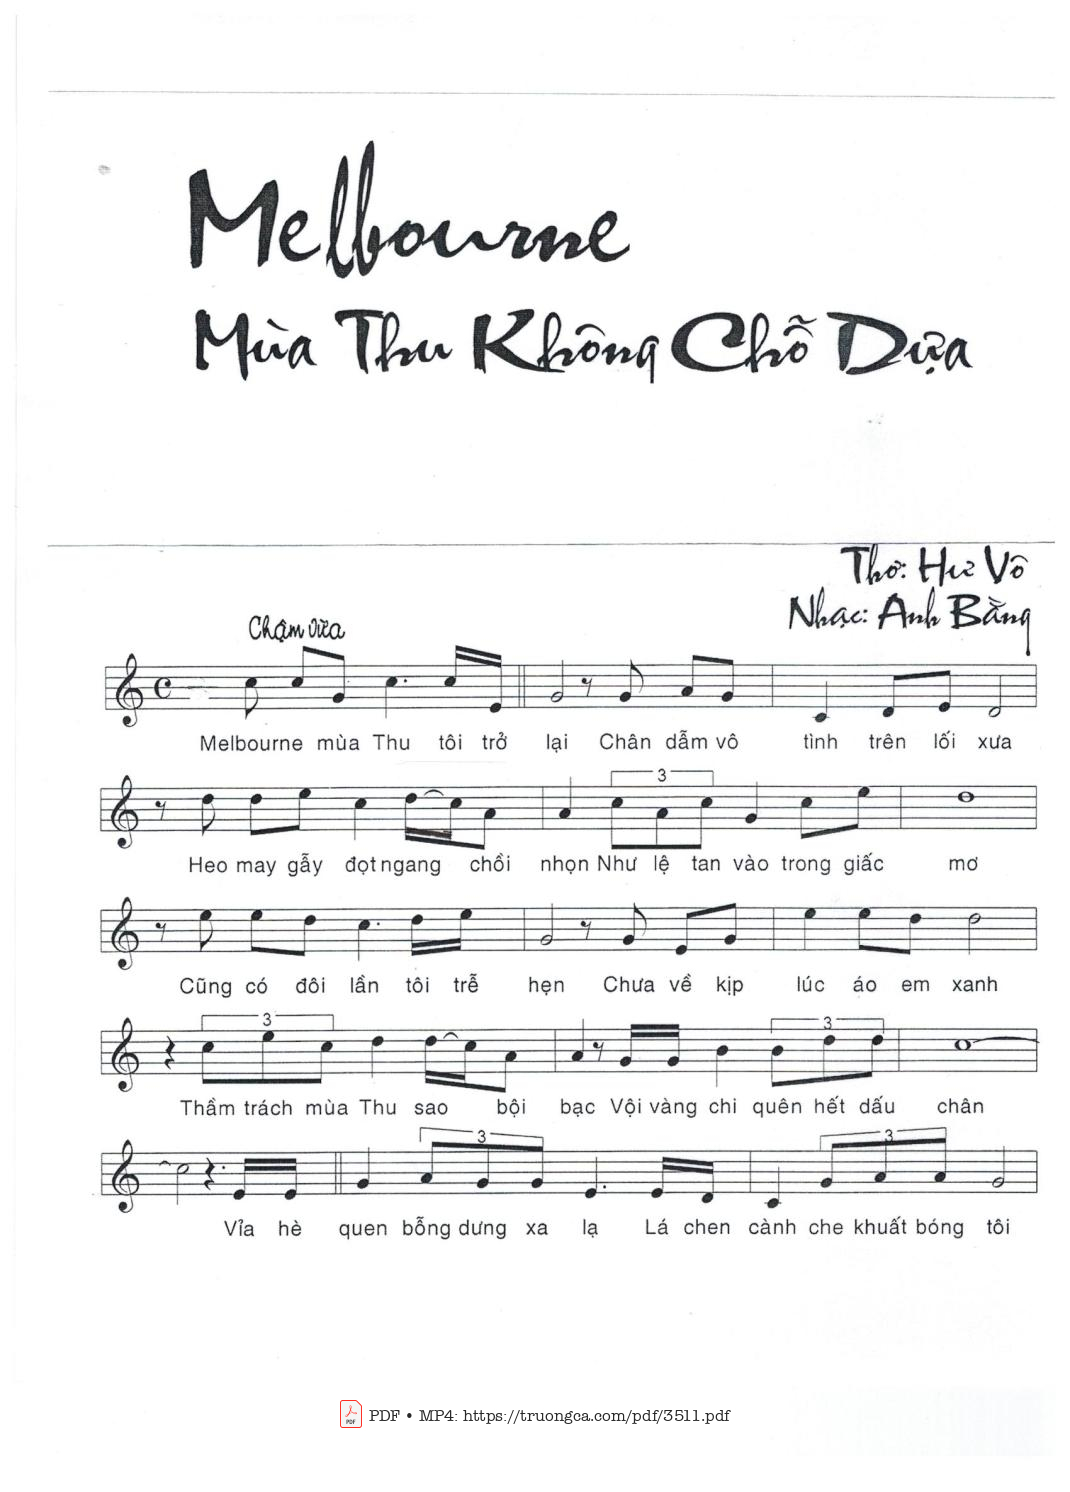 Melbourne
Mùa Thu Không Chỗ Dựa
Thơ: Hư Vô
Nhạc: Anh Bằng
Chậm vừa
Melbourne mùa Thu tôi trở lại Chân dẫm vô tình trên lối xưa
3
Heo may gẫy đọt ngang chồi nhọn Như lệ tan vào trong giấc mơ
Cũng có đôi lần tôi trễ hẹn Chưa về kịp lúc áo em xanh
3 3
Thầm trách mùa Thu sao bội bạc Vội vàng chi quên hết dấu chân
3 3
Vỉa hè quen bỗng dưng xa lạ Lá chen cành che khuất bóng tôi
PDF PDF • MP4: https://truongca.com/pdf/3511.pdf